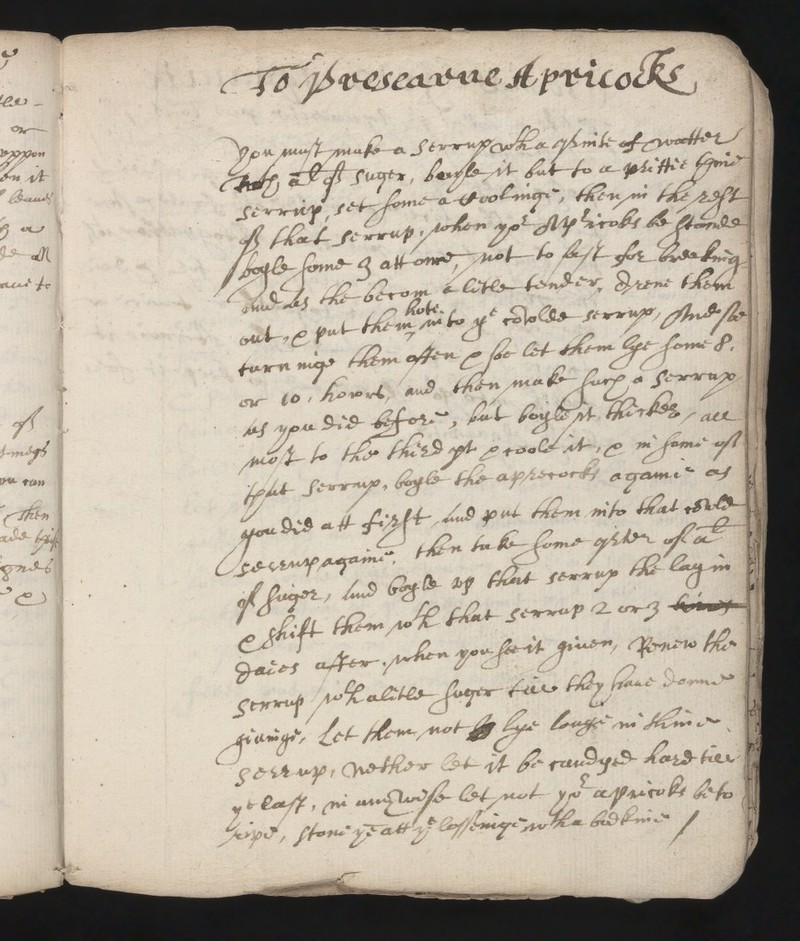 To Presearue Apricocks
you must make a serrup wth a pinte of watter
a l of suger, boyle it but to a prittie thine
serrup, set some a Coolinge, then in the rest
of that serrup, when yor Apricoks be stonde
boyle some 3 att one, not to fast for breaking
and as the becom a litle tender, drene them
out, & put them hote into ye coolde serrup, And soe
turninge them often & soe let them lye some 8.
or 10. howrs, and then make such a serrup
as you did before, but boyle it thicker, all
most to the third pt & coole it, & in some of
that serrup, boyle the aprecocks againe as
you did att first, and put them into that coolde
serrup againe, then take some qrter of a l
of suger, and boyle vp that serrup the lay in
& shift them wth that serrup 2 or 3
daies after, when you see it given, Renew the
serrup wth a litle suger till they haue donne
giuinge, Let them not lye longe in thine
serrup, Nether let it be candyed hard till
ye last, in any wise let not yor apricoks be to
ripe, stone ye att ye with a bodkine
or
vppon
on it
leaues
a
of
you can
Then
&